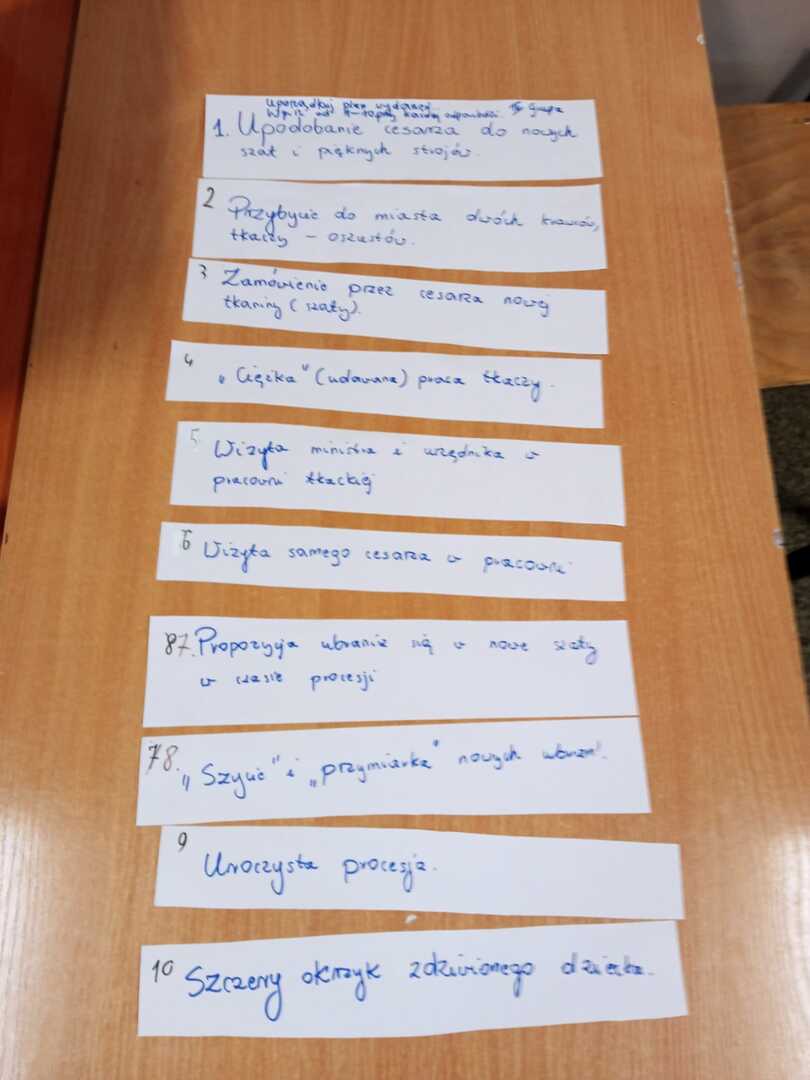 Uporządkuj plan wydarzeń. IV Grupa
Wpisz od 1-10 przy każdej
1. Upodobanie cesarza do nowych
szat i pięknych strojów.
2 Przybycie do miasta dwóch krawców,
tkaczy – oszustów.
3 Zamówienie przez cesarza nowej
tkaniny (szaty).
4 „Ciężka" (udawana) praca tkaczy.
5 Wizyta ministra i urzędnika w
pracowni tkackiej
6 Wizyta samego cesarza w pracowni
87. Propozycja ubrania się w nowe szaty
w czasie procesji
78. „Szycie" i „przymiarka" nowych ubrań.
9 Uroczysta procesja.
10 Szczery okrzyk zdziwionego dziecka.